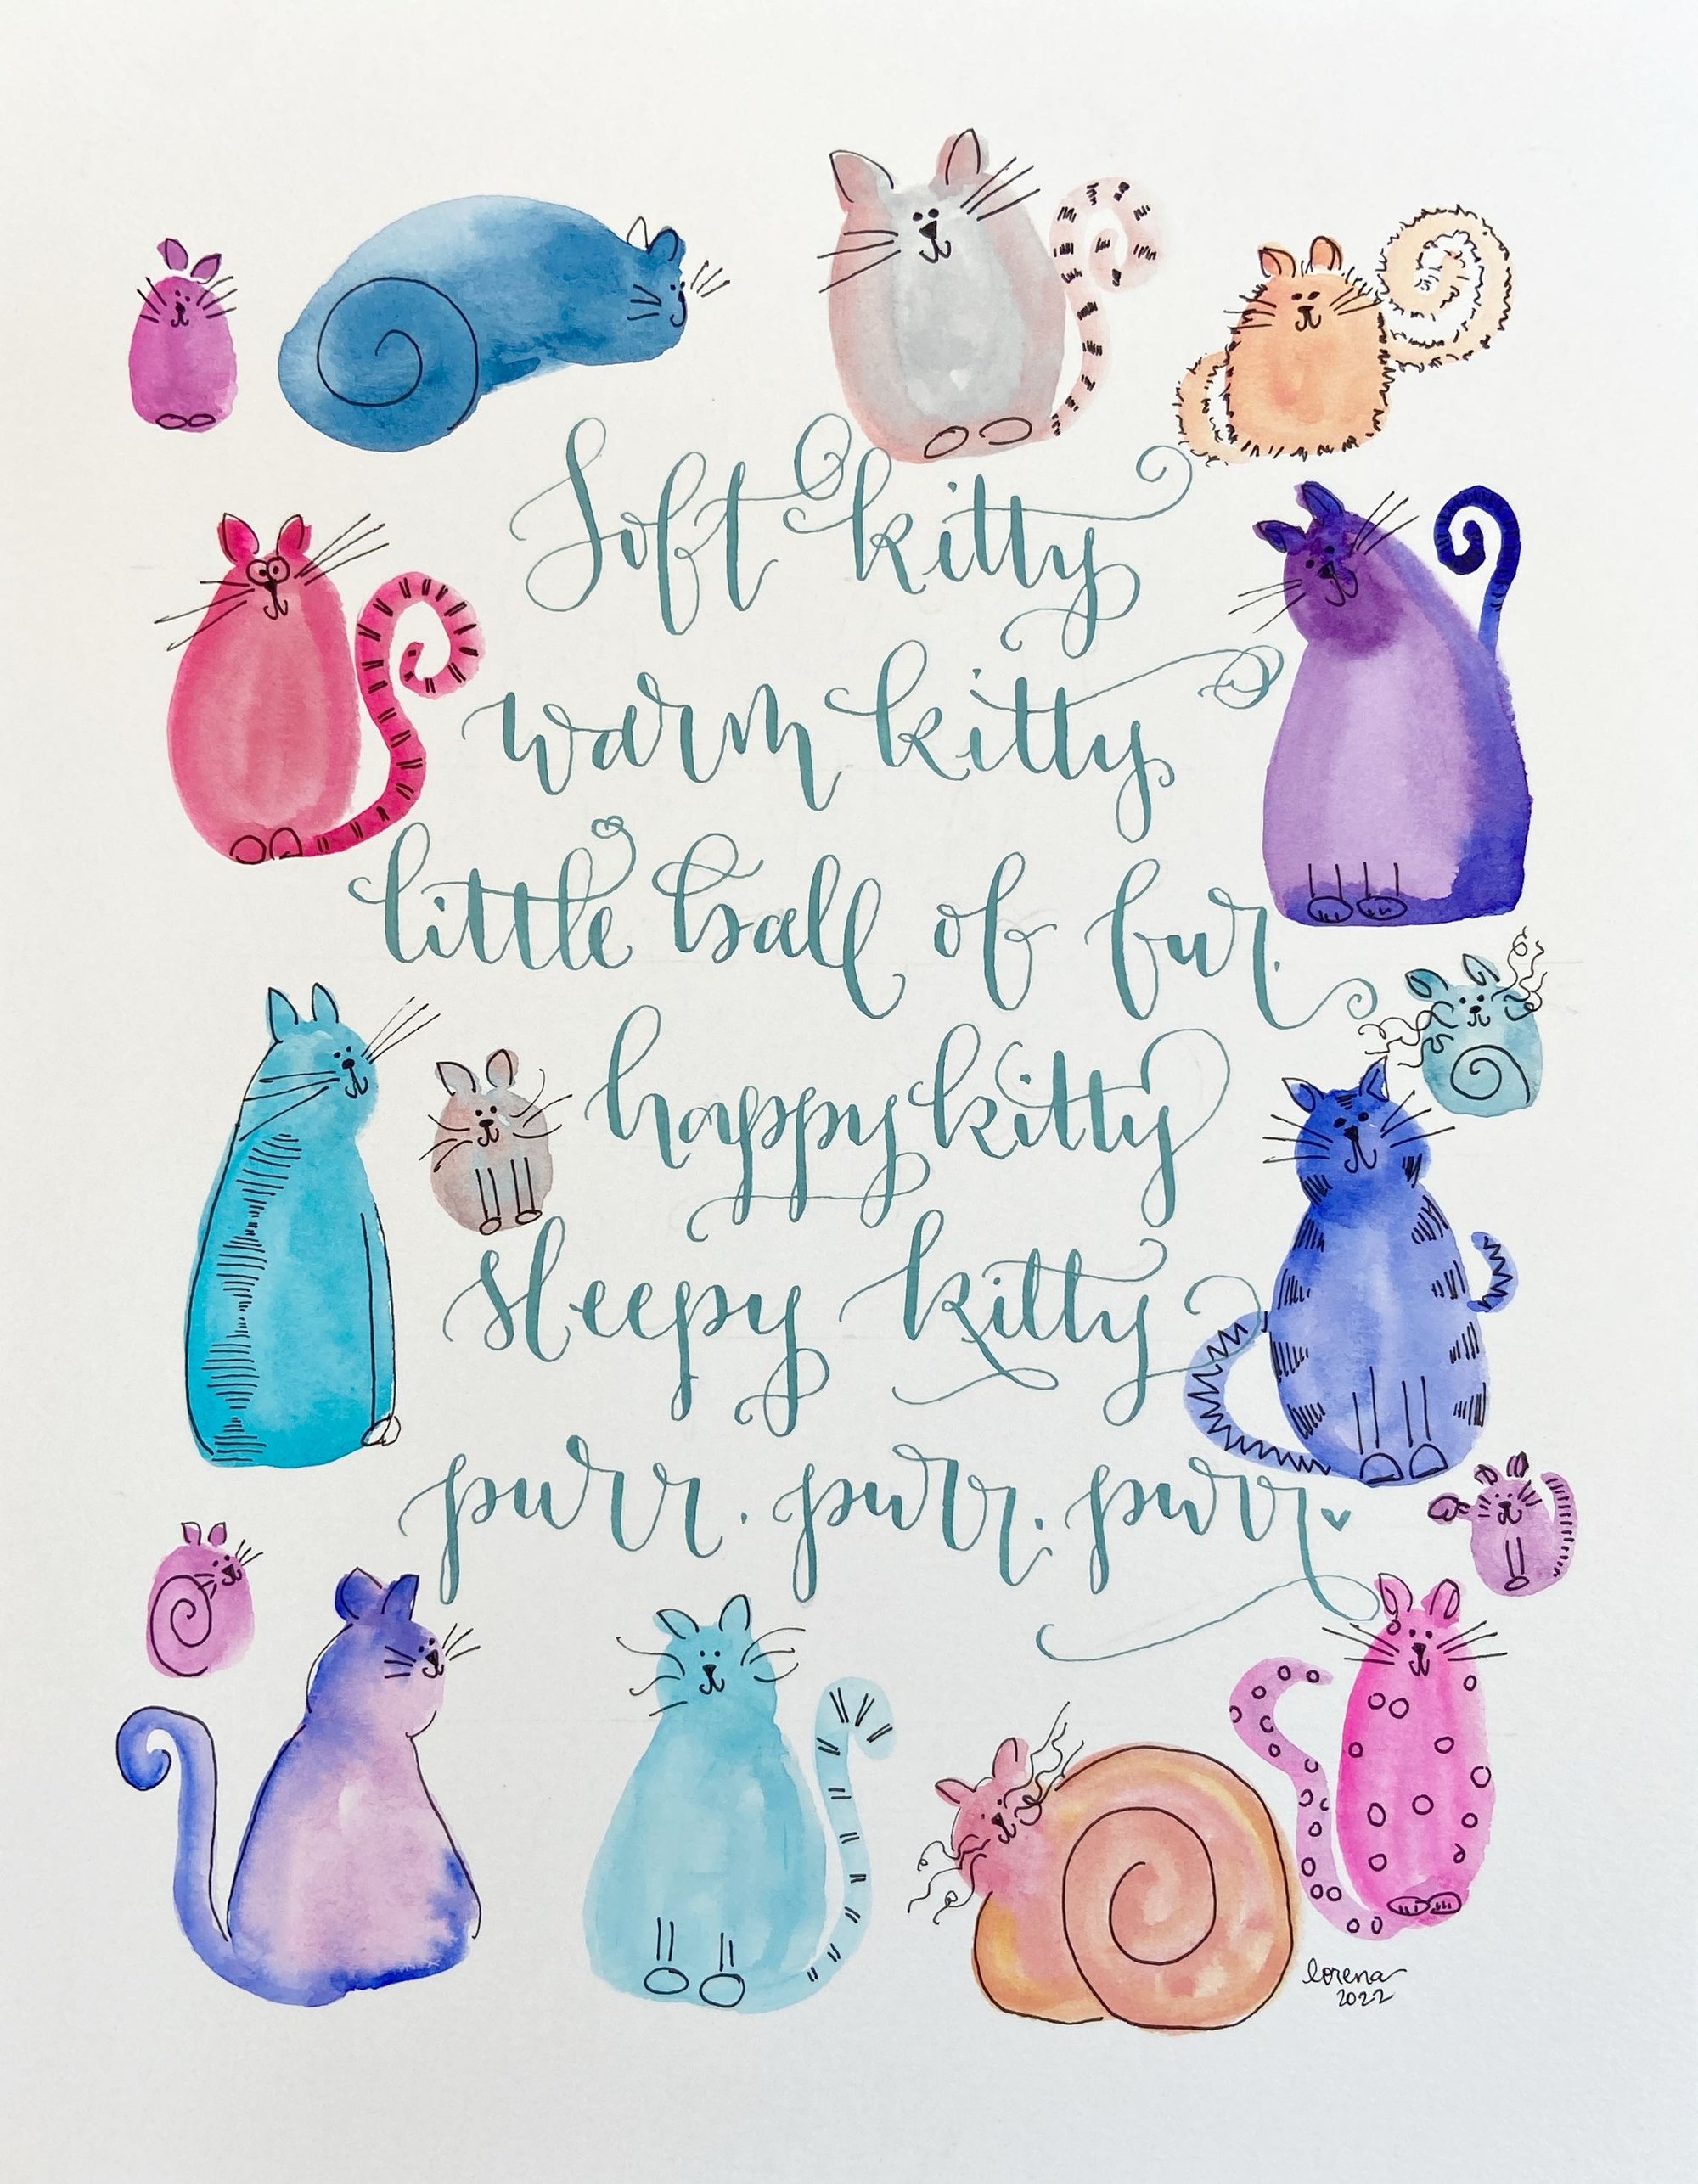 Soft kitty
warm kitty
little ball of fur.
happy kitty
sleepy kitty
purr. purr. purr
lorena
2022